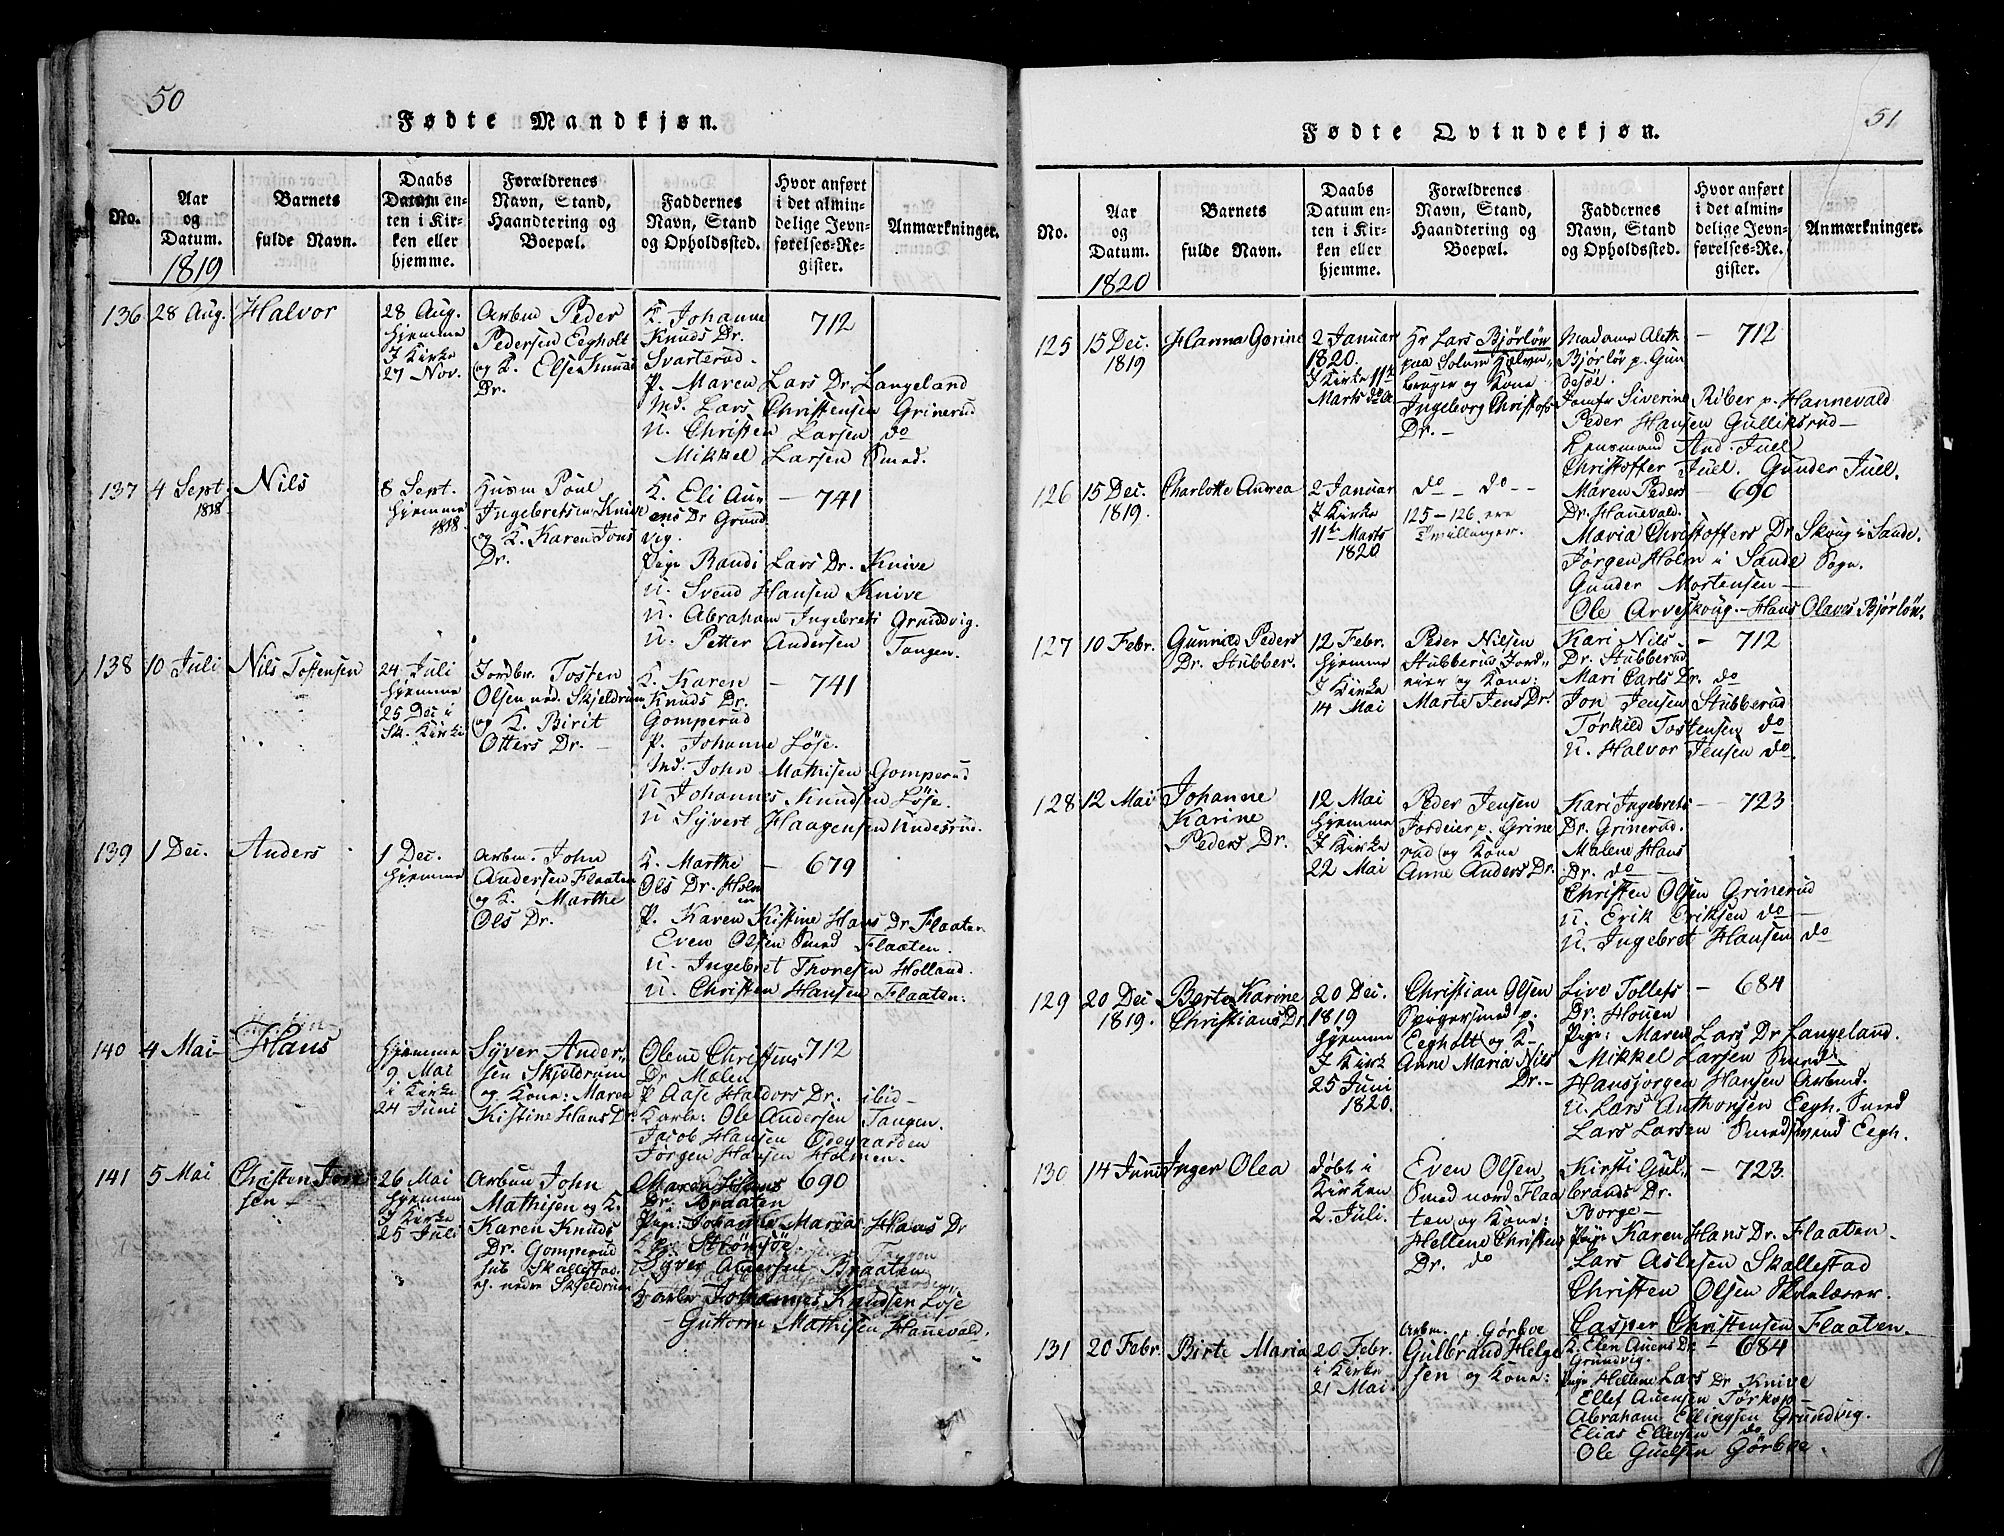 50
Fødte Mandkjøn.
No.
Aar
og
Datum.
1819
Barnets
fulde Navn.
Daabs
Datum en-
ten i Kir-
ken eller
hjemme.
Forældrenes
Navn, Stand,
Haandtering og
Boepæl.
Faddernes
Navn, Stand
og Opholdssted.
Hvor anført
i det almin-
delige Jevn-
førelses-Re-
gister.
Anmærkninger.
136
28 Aug.
Halvor
28 Aug.
hjemme
I Kirke
27 Nov.
Arbm Peder
Pedersen Eegholt
og K. Else Knuds
Dr.
K. Johanne
Knuds Dr.
Svarterud.
P. Maren Lars Dr. Langeland
Md. Lars Christensen Grinerud
U. Christen Larsen do
Mikkel Larsen Smed.
712
137
4 Sept.
1818
Nils
8 Sept.
hjemme
1818
Husm Poul
Ingebretsen Knive
og K. Karen Jons
Dr.
K. Eli Au-
ens Dr Grund
vig.
Pige Randi Lars Dr. Knive
U. Svend Hansen Knive
U. Abraham Ingebrets Grundvig.
U. Petter Andersen Tangen.
741
138
10 Juli
Nils Tostensen
24 Juli
hjemme
25 Dec i
Sk. Kirke
Jordbr. Tosten
Olsen ned. Skjeldrum
og K. Birit
Otters Dr.
K. Karen
Knuds Dr.
Gomperud
P. Johanne Løse.
Md. John Mathisen Gomperud
U Johannes Knudsen Løse.
U Syvert Haagensen Undesrud.
741
139
1 Dec.
Anders
1 Dec.
hjemme
Arbm. John
Andersen Flaaten
og K. Marthe
Ols Dr.
K. Marthe
Ols Dr. Holm
en
P. Karen Kistine Hans Dr Flaaten
Even Olsen Smed Flaaten.
U. Ingebret Thoresen Holland.
U. Christen Hansen Flaaten.
679
140
4 Mai
Hans
hjemme
9 Mai
i Kirke
24 Juni
Syver Ander-
sen Skjeldrum
og Kone: Maren
Kistine Hans Dr.
Olene Christens
Dr. Malen
P Aase Haldors Dr. ibid
Karle: Ole Andersen Tangen.
Jacob Hansen Odegaarden
Jørgen Hansen Holmen.
712
141
5 Mai
Christen Jon
sen
26 Mai
hjemme
I Kirke
25 Juli
Arbm John
Mathisen og K.
Karen Knuds
Dr. Gomperud
sub Skallestad.
ej. nedre Skjeldrum
Maren Hans
Dr. Braaten
Pige: Johanne Maria Hans Dr
Strømsøe.
Syver Andersen Braaten
Karle Johannes Knudsen Løse
Guttorm Mathisen Hannevald.
690
51
Fødte Qvindekjøn.
No.
Aar
og
Datum.
1820
Barnets
fulde Navn.
Daabs
Datum en-
ten i Kir-
ken eller
hjemme.
Forældrenes
Navn, Stand,
Haandtering og
Boepæl.
Faddernes
Navn, Stand
og Opholdssted.
Hvor anført
i det almin-
delige Jevn-
førelses-Re-
gister.
Anmærkninger.
125
15 Dec.
1819
Hanna Gorine
2 Januar
1820.
I Kirke 11te
Marts do A
Hr Lars Bjørløv
paa Solum
bruger og Kone
Ingeborg Christofs
Dr.
Madame Aleth
Bjørløv p. Gun
desøe.
Jomfr Siverine Riber p. Hannevald
Peder Hansen Gulliksrud
Lensmand And. Juel
Christoffer Juel. Gunder Juel.
712
126
15 Dec.
1819.
Charlotte Andrea
2 Januar
I Kirke
11te Marts
1820
do - do -
125-126 ere
Tvillinger.
Maren Peders
Dr. Hanevald.
Maria Christoffers Dr Skoug i Sande.
Jørgen Holm i Sande Sogn.
Gunder Mortensen
Ole Arveskoug. Hans Olaves Bjørløw.
690
127
10 Febr.
Gunnild Peders
Dr. Stubber.
12 Febr.
hjemme
I Kirke
14 Mai
Peder Nilsen
Stubberud Jord-
eier og Kone:
Marte Jens Dr.
Kari Nils
Dr. Stubberud
Mari Carls Dr. do
Jon Jensen Stubberud
Tørkild Tostensen do
U. Halvor Jensen do.
712
128
12 Mai
Johanne
Karine
Peders Dr.
12 Mai
hjemme
I Kirke
22 Mai
Peder Jensen
Jordeier p. Grine
rud og Kone
Anne Anders Dr.
Kari Ingebrets
Dr. Grinerud.
Malene Hans
Dr. do
Christen Olsen Grinerud
U. Erik Eriksen do
U. Ingebret Hansen do
723
129
20 Dec
1819.
Berte Karine
Christians Dr.
20 Dec.
1819
hjemme
I Kirk
25 Juni
1820.
Christian Olsen
Spigersmed p.
Eegholt og K
Anne Maria Nils
Dr.
Live Tollefs
Dr. Houen
Pige: Maren Lars Dr Langeland.
Mikkel Larsen Smed
Hansjørgen Hansen Arbmd.
U. Lars Anthonsen Eegh. Smed
Lars Larsen Smedsvend Eegh.
684
130
14 Juni
Inger Olea
Døbt i
Kirken
2. Juli.
Even Olsen
Smed nord Flaa
ten og Kone:
Hellene Christens
Dr. do
Kirsti Gul-
brands Dr.
Borge
Pige Karen Hans Dr. Flaaten
Lars Aslesen Skallestad
Christen Olsen Skolelærer.
Casper Christensen Flaaten.
723
131
20 Febr.
Birte Maria
20 Febr.
i Kirke
21 Mai.
Arbm. p. Gørbve
Gulbrand Helge
sen og Kone:
K. Elen Auens Dr
Grundvig.
Pige Hellene Lars Dr Knive
Ellef Auensen Tørkop
Abraham Ellingsen Grundvig.
Elias Ellevsen do
Ole Guelsen Gørbve.
684